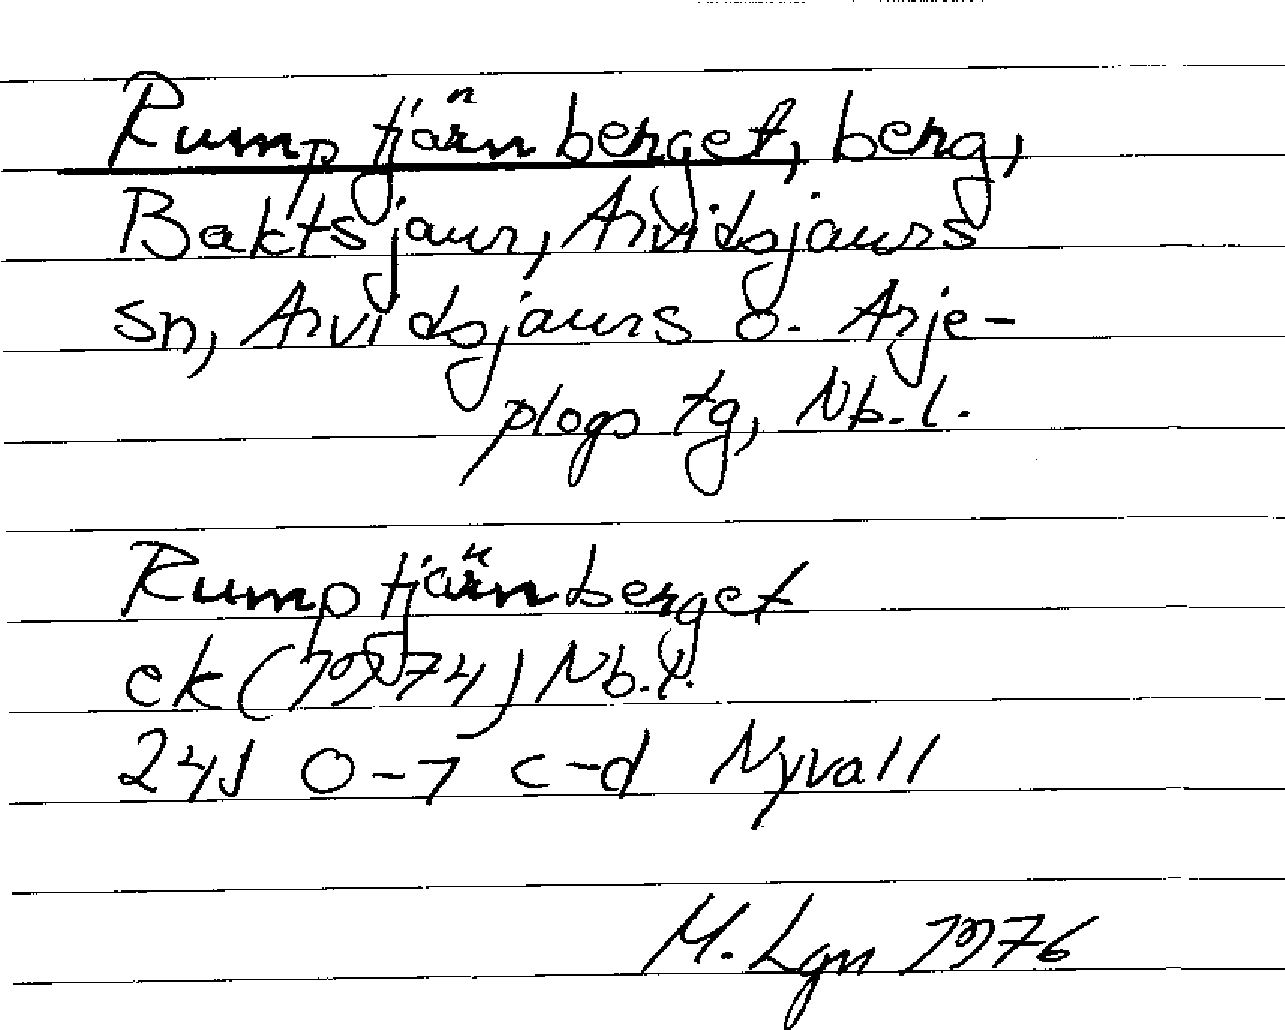 Rumptjärnberget, berg,
Baktsjaur, Arvidsjaurs
sn, Arvidsjaurs o. Arje-
plogs tg, Nb. l.
Rumptjärnberget
ek (1974) Nb. l.
24J 0-1 c-d Nyvall
M. Lgn 1976